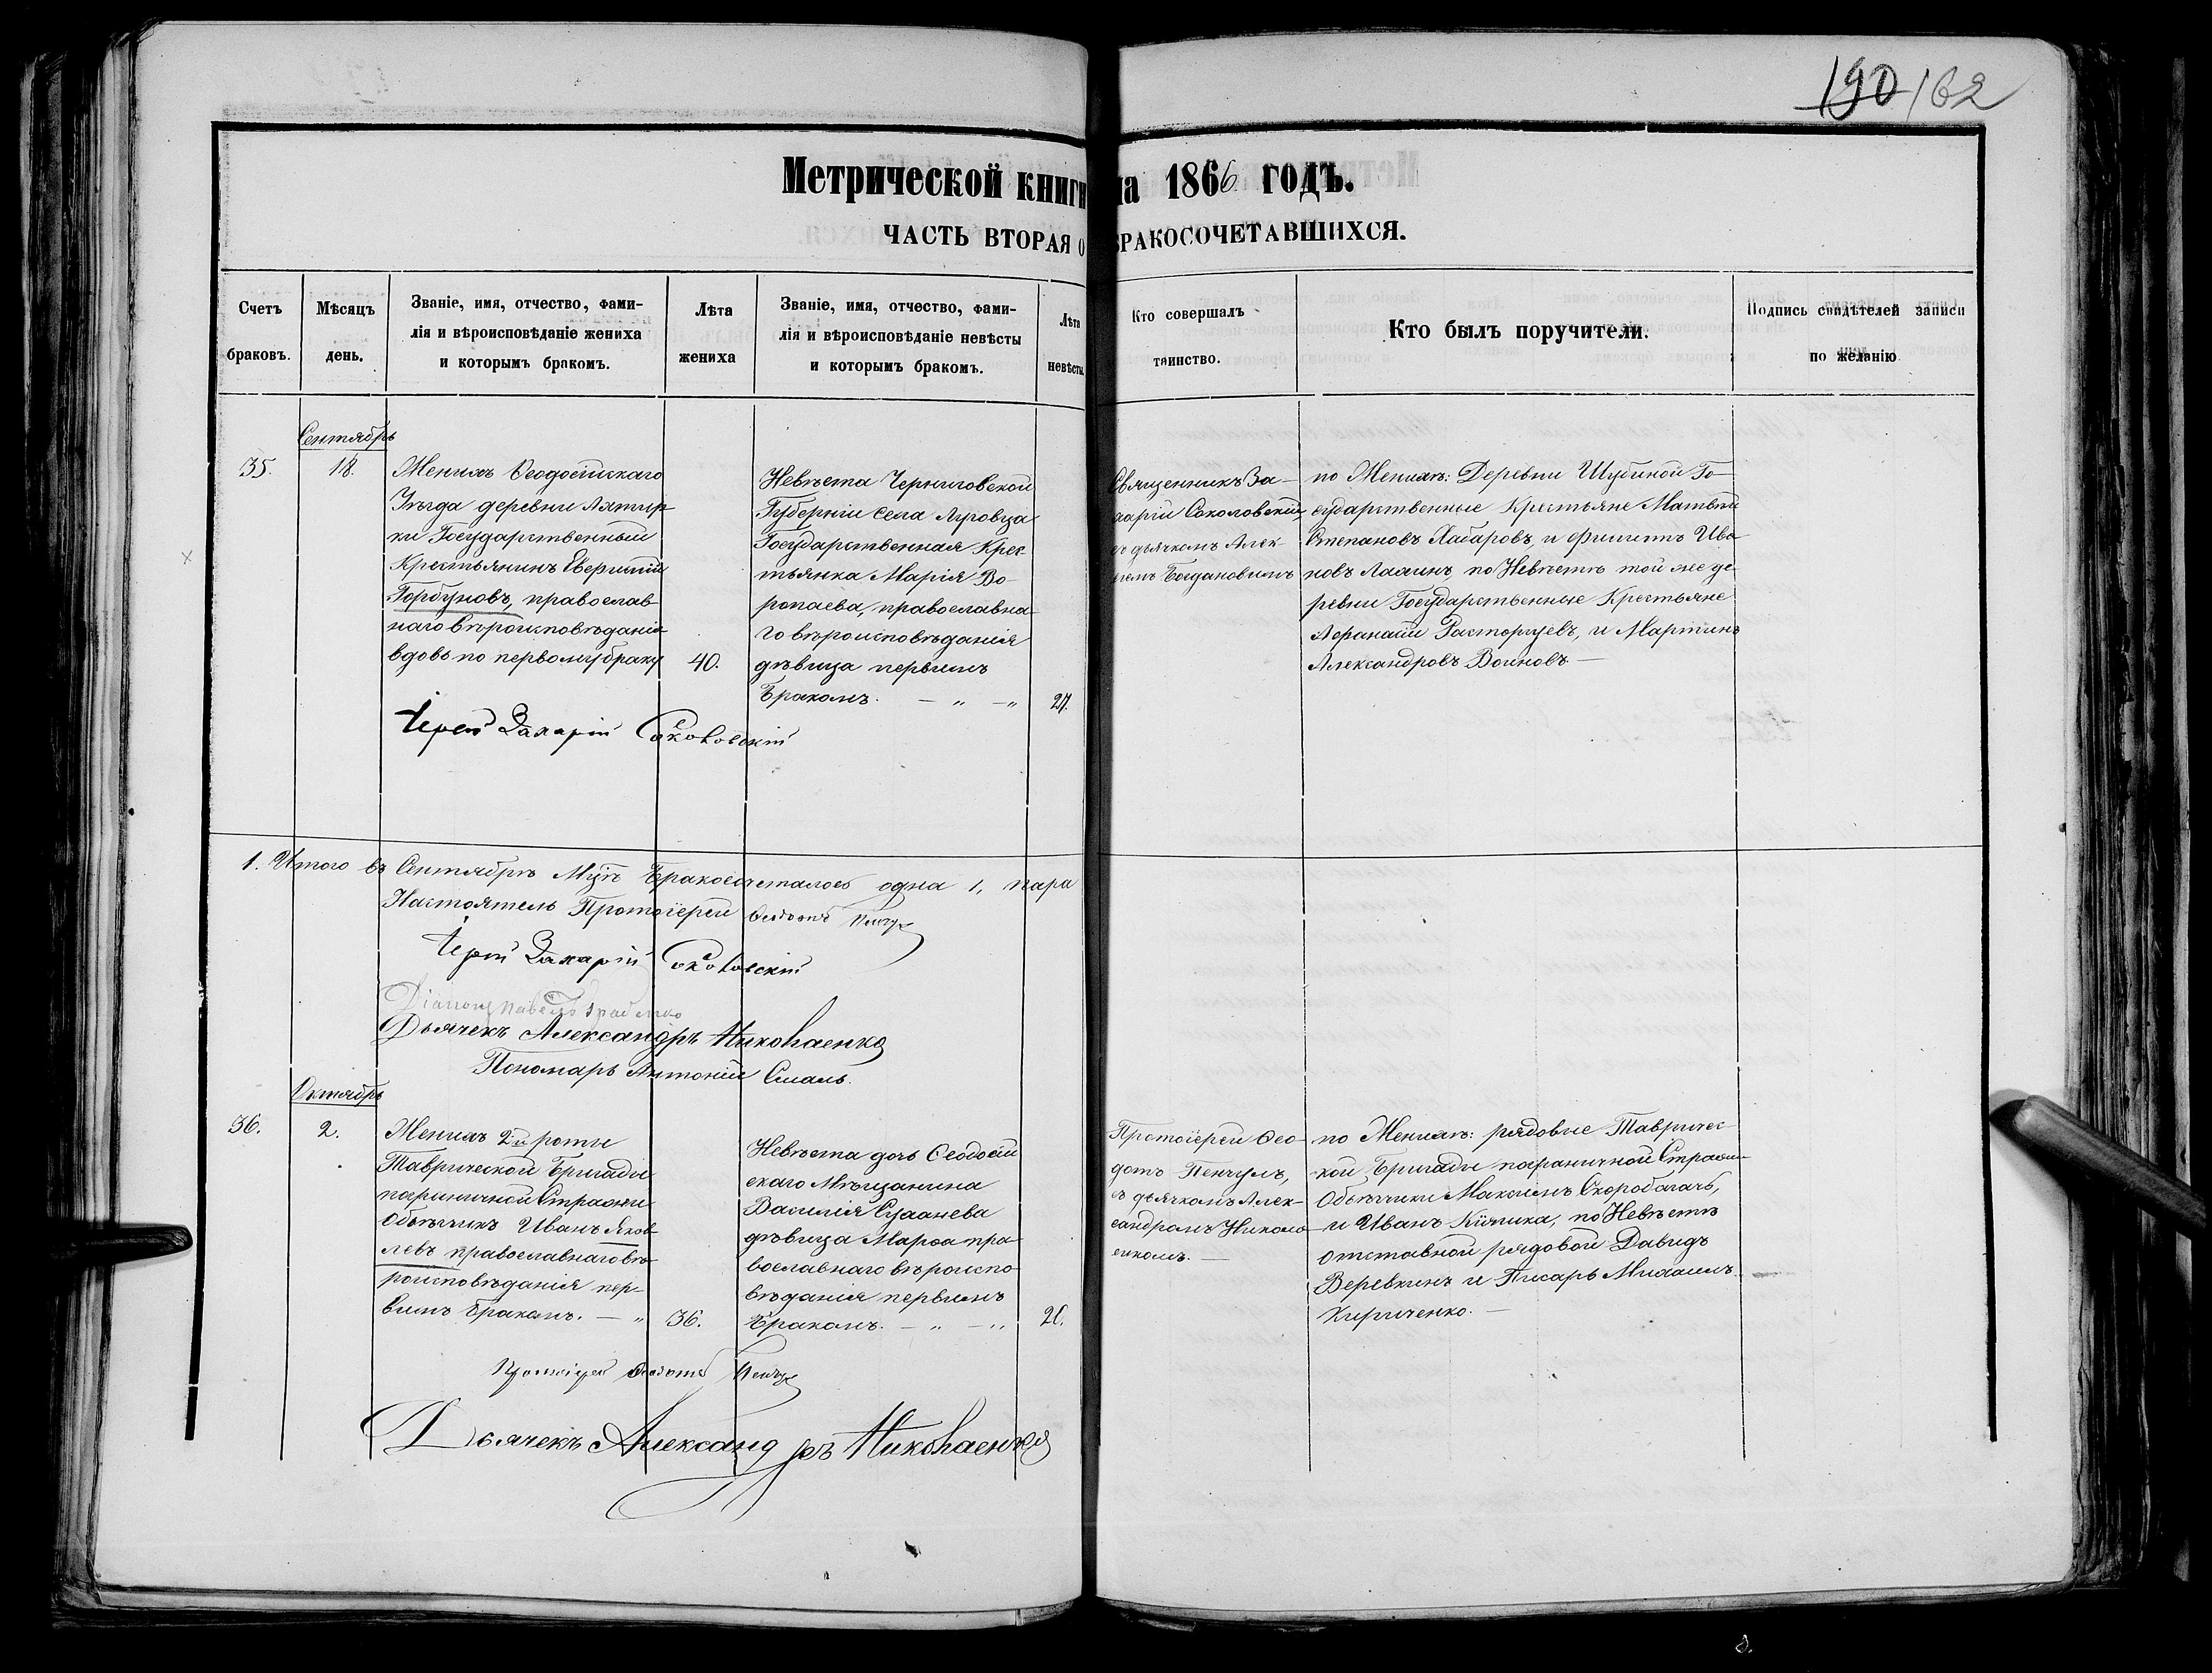 190 162
Метрической книги на 1866 годъ.
ЧАСТЬ ВТОРАЯ О БРАКОСОЧЕТАВШИХСЯ.
Счетъ
браковъ.
Мѣсяцъ
день.
Званіе, имя, отчество, фами-
лія и вѣроисповѣданіе жениха
и которымъ бракомъ.
Лѣта
жениха
Званіе, имя, отчество, фами-
лія и вѣроисповѣданіе невѣсты
и которымъ бракомъ.
Лѣта
невѣсты.
Кто совершалъ
таинство.
Кто былъ поручители.
Подпись свидѣтелей записи
по желанію
Сентябрь
35.
18.
Женихъ Ѳеодосійскаго
Уѣзда деревни
ки Государственный
Крестьянинъ
Горбуновъ, православ-
наго вѣроисповѣданія
вдовъ по первому браку
40.
Невѣста Черниговской
Губерніи села
Государственная Крес
тьянка Марія Во-
ропаева, православна-
го вѣроисповѣданія
дѣвица первымъ
бракомъ. — „ — „
27.
Священникъ За-
харій Соколовскій,
съ дьячкомъ Алек-
Богдановымъ
по Женихѣ: Деревни Шубиной Го-
сударственные Крестьяне Матвѣй
Степановъ Хабаровъ, и Филиппъ Ива
новъ по Невѣстѣ той же де-
ревни Государственные Крестьяне
Афанасій Расторгуевъ, и Мартинъ
Александровъ Воиновъ —
Іерей Захарій Соколовскій
1. Итого въ Сентябрѣ Мцѣ бракосочеталось одна 1, пара
Настоятель Протоіерей Ѳеодотъ
Іерей Захарій Соколовскій
Діаконъ Павелъ
Дьячекъ Александръ Николаенко
Пономарь Антоній Смаль.
Октябрь
36.
2.
Женихъ 2й роты
Таврической Бригады
пограничной Стражи
Объѣщикъ Иванъ Яков-
левъ православнаго вѣ-
роисповѣданія пер-
вымъ бракомъ. — „
36.
Невѣста дочь Ѳеодосій
скаго Мѣщанина
Василія
дѣвица Марѳа пра-
вославнаго вѣроиспо-
вѣданія первымъ
бракомъ. — „ — „
21.
Протоіерей Ѳео-
дотъ Пенчулъ,
съ дьячкомъ Алек-
сандромъ Никола-
енкомъ. —
по Женихѣ: рядовые Тавричес-
кой Бригады пограничной Стражи
Объѣщики Максимъ Скоробагачь,
и Иванъ по Невѣстѣ
отставной рядовой Давидъ
Веревкинъ и Писарь Михаилъ
Кириченко. —
Протоіерей Ѳеодотъ
Дьячекъ Александръ Николаенко